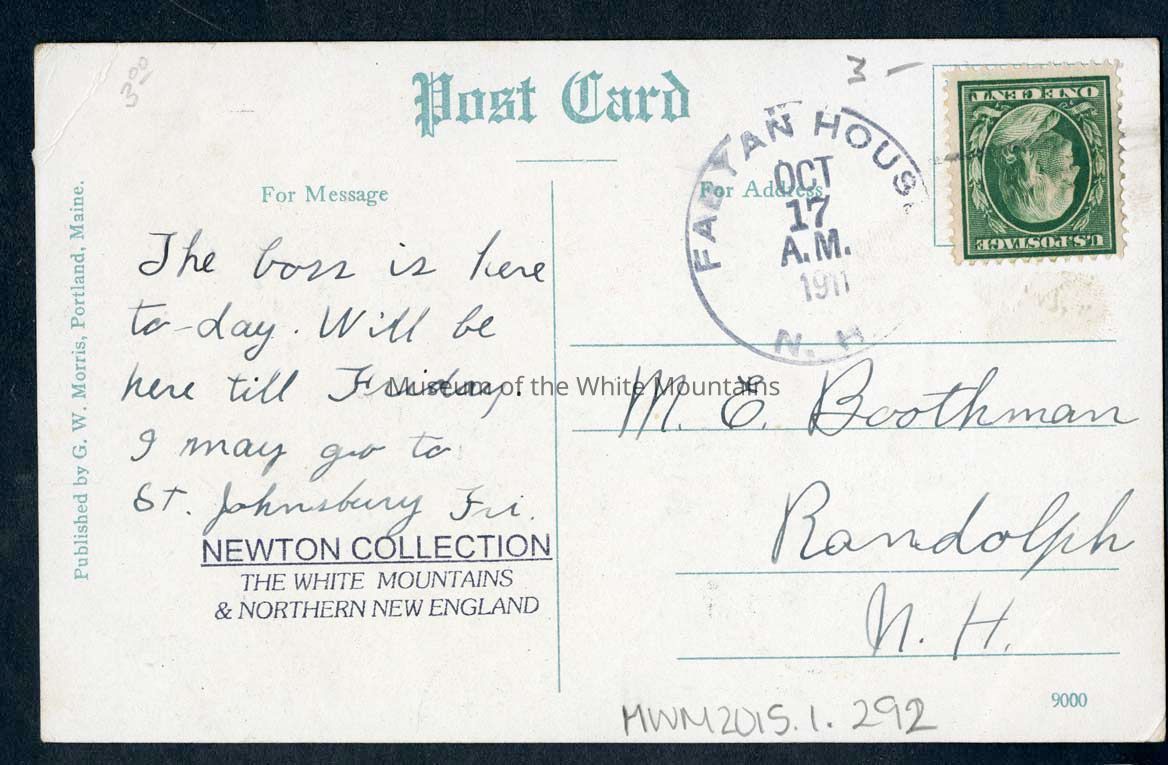 3.00
Post Card
For Message
For Address
Published by G. W. Morris, Portland, Maine.
FABYAN HOUS
N. H.
OCT
17
A.M.
1911
U.S. POSTAGE
ONE CENT
The boss is here
to-day. Will be
here till Friday.
I may go to
St. Johnsbury Fri.
Museum of the White Mountains
M. E. Boothman
Randolph
N. H.
NEWTON COLLECTION
THE WHITE MOUNTAINS
& NORTHERN NEW ENGLAND
9000
MWM2015.1.292